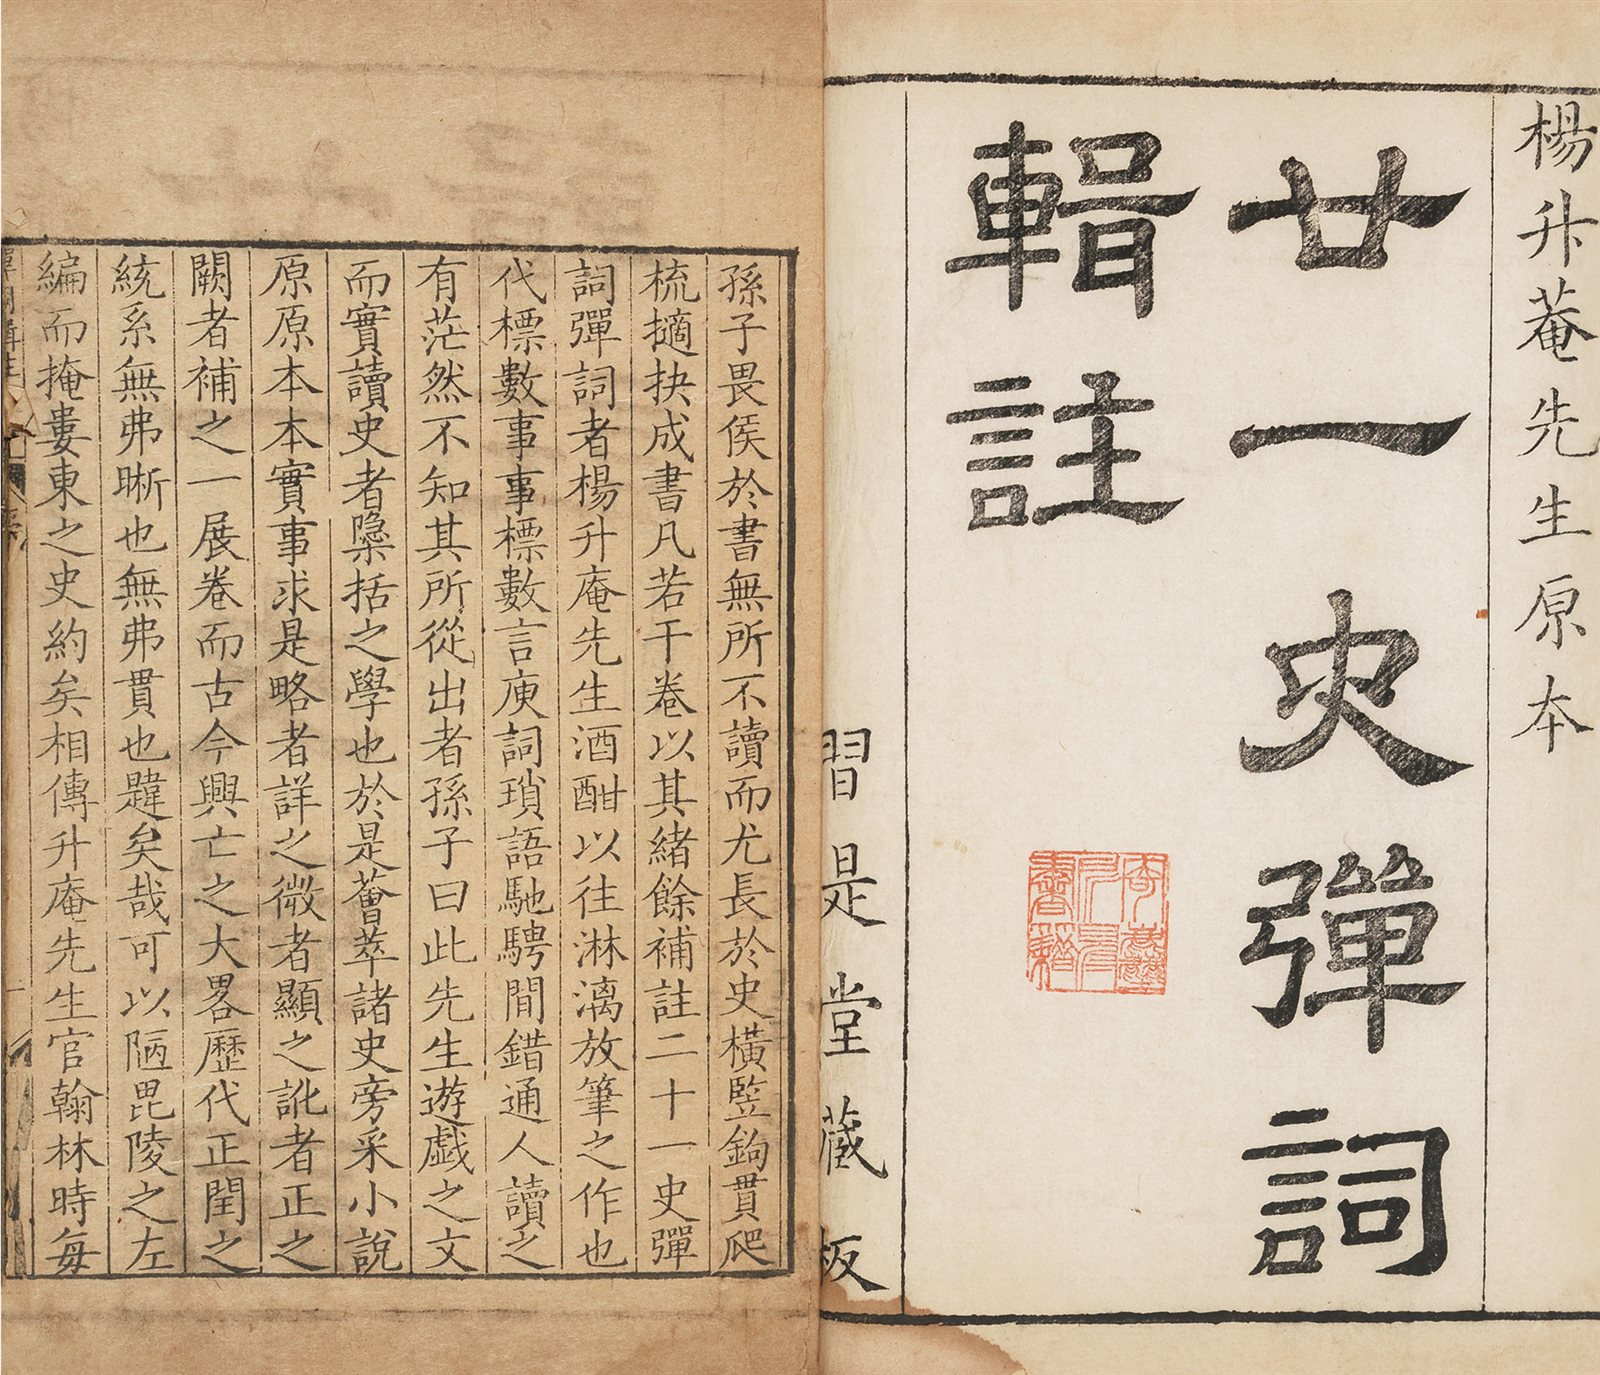 楊升菴先生原本
廿一史彈詞
輯註
習是堂藏板
孫子畏侯於書無所不讀而尤長於史橫豎鉤貫爬
梳擿抉成書凡若干卷以其緒餘補註二十一史彈
詞彈詞者楊升庵先生酒酣以往淋漓放筆之作也
代標數事事標數言庾詞瑣語馳騁閒錯通人讀之
有茫然不知其所從出者孫子曰此先生遊戱之文
而實讀史者檃括之學也於是薈萃諸史旁采小說
原原本本實事求是略者詳之微者顯之訛者正之
闕者補之一展卷而古今興亡之大畧歷代正閏之
統系無弗晰也無弗貫也韙矣哉可以陋毘陵之左
編而掩婁東之史約矣相傳升庵先生官翰林時每